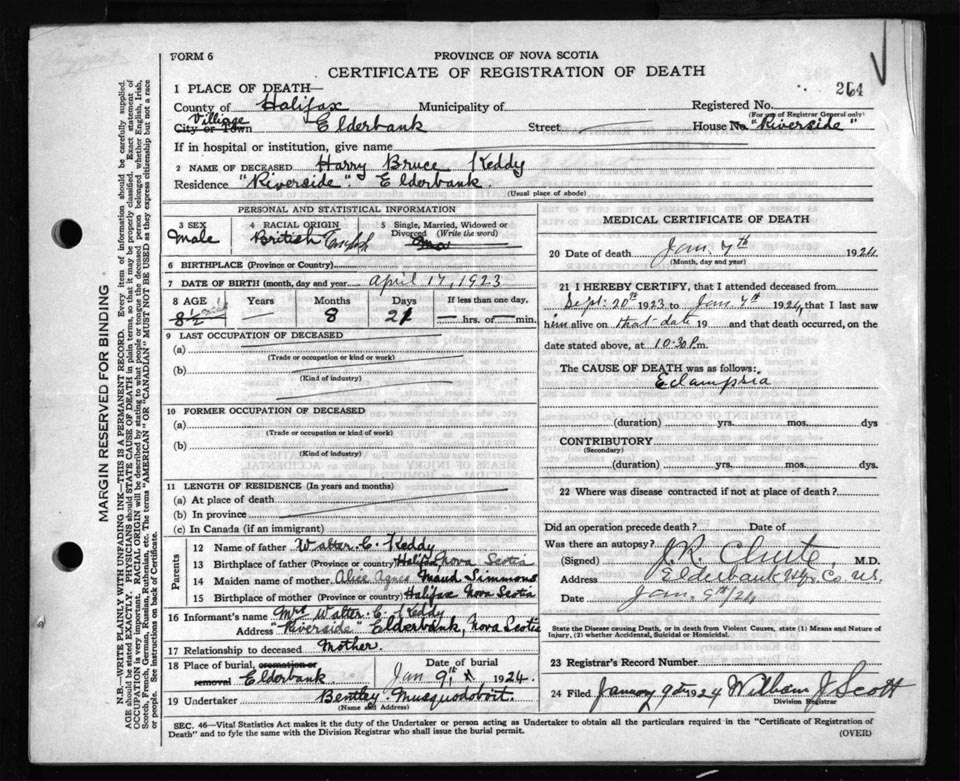 FORM 6
PROVINCE OF NOVA SCOTIA
CERTIFICATE OF REGISTRATION OF DEATH
264
1 PLACE OF DEATH—
County of Halifax Municipality of Registered No.
(For use of Registrar General only)
Village
City or Town Elderbank Street House No. "Riverside"
If in hospital or institution, give name
2 NAME OF DECEASED Harry Bruce Keddy
Residence "Riverside". Elderbank.
(Usual place of abode)
PERSONAL AND STATISTICAL INFORMATION
3 SEX 4 RACIAL ORIGIN 5 Single, Married, Widowed or Divorced (Write the word)
Male British English
6 BIRTHPLACE (Province or Country)
7 DATE OF BIRTH (month, day and year) April 17, 1923
8 AGE Years Months Days If less than one day,
8½ 8 21 hrs. or min.
9 LAST OCCUPATION OF DECEASED
(a)
(Trade or occupation or kind or work)
(b)
(Kind of industry)
10 FORMER OCCUPATION OF DECEASED
(a)
(Trade or occupation or kind of work)
(b)
(Kind of industry)
11 LENGTH OF RESIDENCE (In years and months)
(a) At place of death
(b) In province
(c) In Canada (if an immigrant)
Parents
12 Name of father Walter C. Keddy
13 Birthplace of father (Province or country) Halifax Nova Scotia
14 Maiden name of mother Alice Agnes Maud Simmons
15 Birthplace of mother (Province or country) Halifax Nova Scotia
16 Informant's name Mrs Walter C. Keddy
Address "Riverside" Elderbank, Nova Scotia
17 Relationship to deceased Mother.
18 Place of burial, cremation or removal Elderbank Date of burial Jan 9th 1924.
19 Undertaker Bentley Musquodoboit.
(Name and Address)
MEDICAL CERTIFICATE OF DEATH
20 Date of death Jan. 7th 1924
(Month, day and year)
21 I HEREBY CERTIFY, that I attended deceased from
Sept. 20th 1923 to Jan. 7th 1924, that I last saw
him alive on that date 19 and that death occurred, on the
date stated above, at 10.30 P.m.
The CAUSE OF DEATH was as follows:
Eclampsia
(duration) yrs. mos. dys
CONTRIBUTORY
(Secondary)
(duration) yrs. mos. dys.
22 Where was disease contracted if not at place of death?
Did an operation precede death? Date of
Was there an autopsy?
(Signed) J.R. Chute M.D.
Address Elderbank Hfx. Co. N.S.
Date Jan. 9th/24
State the Disease causing Death, or in death from Violent Causes, state (1) Means and Nature of
Injury, (2) whether Accidental, Suicidal or Homicidal.
23 Registrar's Record Number
24 Filed January 9th 1924 William J Scott
Division Registrar
SEC. 46—Vital Statistics Act makes it the duty of the Undertaker or person acting as Undertaker to obtain all the particulars required in the "Certificate of Registration of
Death" and to file the same with the Division Registrar who shall issue the burial permit.
(OVER)
MARGIN RESERVED FOR BINDING
N.B.—WRITE PLAINLY WITH UNFADING INK—THIS IS A PERMANENT RECORD. Every item of information should be carefully supplied.
AGE should be stated EXACTLY. PHYSICIANS should STATE CAUSE OF DEATH in plain terms, so that it may be properly classified. Exact statement of
OCCUPATION is very important. RACIAL ORIGIN will be described by stating to what people or tongue the deceased person belonged whether English, Irish,
Scotch, French, German, Russian, Ruthenian, etc. The terms "AMERICAN" OR "CANADIAN" MUST NOT BE USED as they express citizenship but not a race
or people. See instructions on back of Certificate.